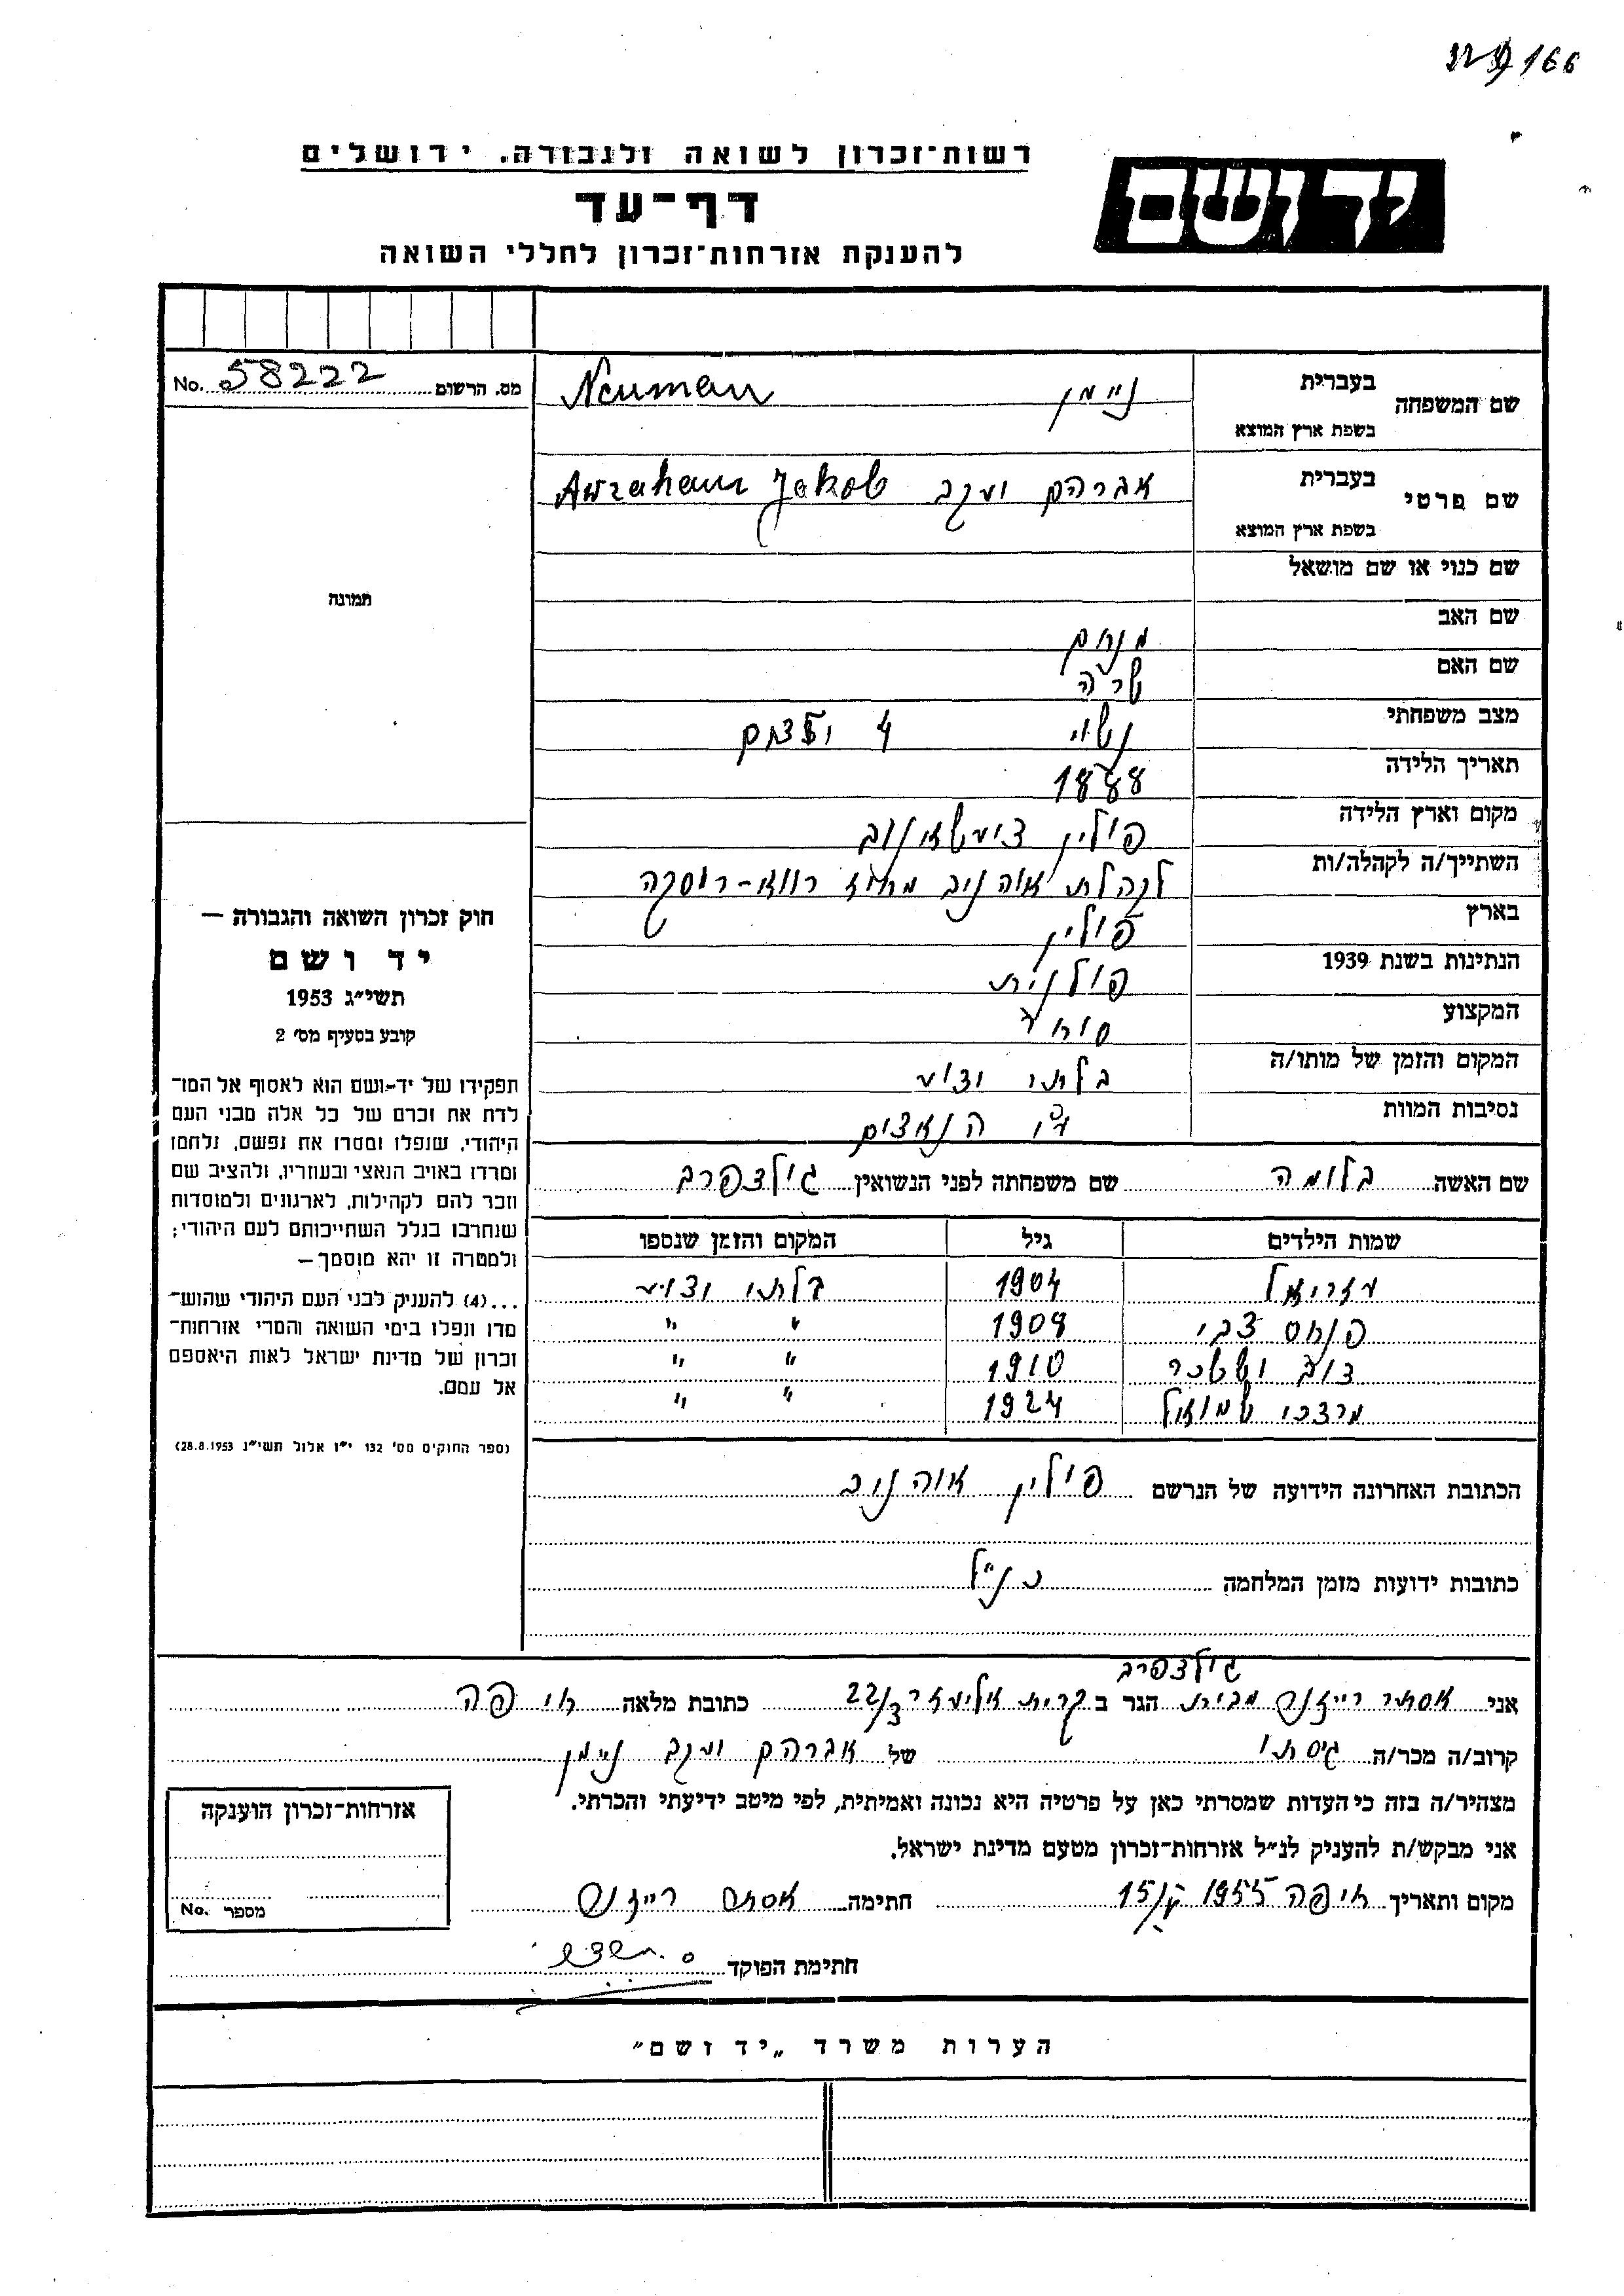 166
רשות־זכרון לשואה ולגבורה. ירושלים
יד ושם
דף־עד
להענקת אזרחות־זכרון לחללי השואה
מס. הרשום 58222 No.
שם המשפחה
בעברית
בשפת ארץ המוצא
ניימן Neuman
שם פרטי
בעברית
בשפת ארץ המוצא
אברהם יעקב Awraham Jakob
שם כנוי או שם מושאל
שם האב מנחם
שם האם שרה
מצב משפחתי נשוי 4 ילדים
תאריך הלידה 1888
מקום וארץ הלידה פולין
השתייך/ה לקהלה/ות לקהלת אוהניב מחוז רווא-רוסקה
בארץ פולין
הנתינות בשנת 1939 פולנית
המקצוע סוחר
המקום והזמן של מותו/ה בלתי ידוע
נסיבות המוות ע"י הנאצים
שם האשה בלומה שם משפחתה לפני הנשואין גולדפרב
שמות הילדים גיל המקום והזמן שנספו
עזריאל 1904 בלתי ידוע
פנחס צבי 1909 " "
דוב יששכר 1910 " "
מרדכי שמואל 1924 " "
הכתובת האחרונה הידועה של הנרשם פולין אוהניב
כתובות ידועות מזמן המלחמה כנ"ל
תמונה
חוק זכרון השואה והגבורה —
יד ושם
תשי״ג 1953
קובע בסעיף מס׳ 2
תפקידו של יד-ושם הוא לאסוף אל המו־
לדת את זכרם של כל אלה מבני העם
היהודי, שנפלו ומסרו את נפשם, נלחמו
ומרדו באויב הנאצי ובעוזריו, ולהציב שם
וזכר להם לקהילות, לארגונים ולמוסדות
שנחרבו בגלל השתייכותם לעם היהודי;
ולמטרה זו יהא מוסמך —
...(4) להענק לבני העם היהודי שהוש־
מדו ונפלו בימי השואה והמרי אזרחות־
זכרון של מדינת ישראל לאות היאספם
אל עמם.
(ספר החוקים מס׳ 132 י״ז אלול תשי״ג 28.8.1953)
גולדפרב
אני אסתר מבית הגר ב קרית אליעזר 22/3 כתובת מלאה חיפה
קרוב/ה מכר/ה גיסתו של אברהם יעקב ניימן
מצהיר/ה בזה כי העדות שמסרתי כאן על פרטיה היא נכונה ואמיתית, לפי מיטב ידיעתי והכרתי.
אני מבקש/ת להעניק לנ״ל אזרחות־זכרון מטעם מדינת ישראל.
מקום ותאריך חיפה 1955 חתימה אסתר
חתימת הפוקד
אזרחות־זכרון הוענקה
מספר No.
הערות משרד „יד ושם״